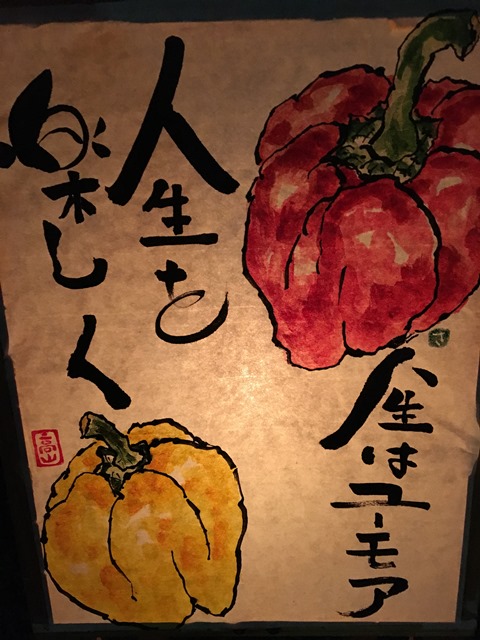 人生はユーモア
人生を
楽しく
高山